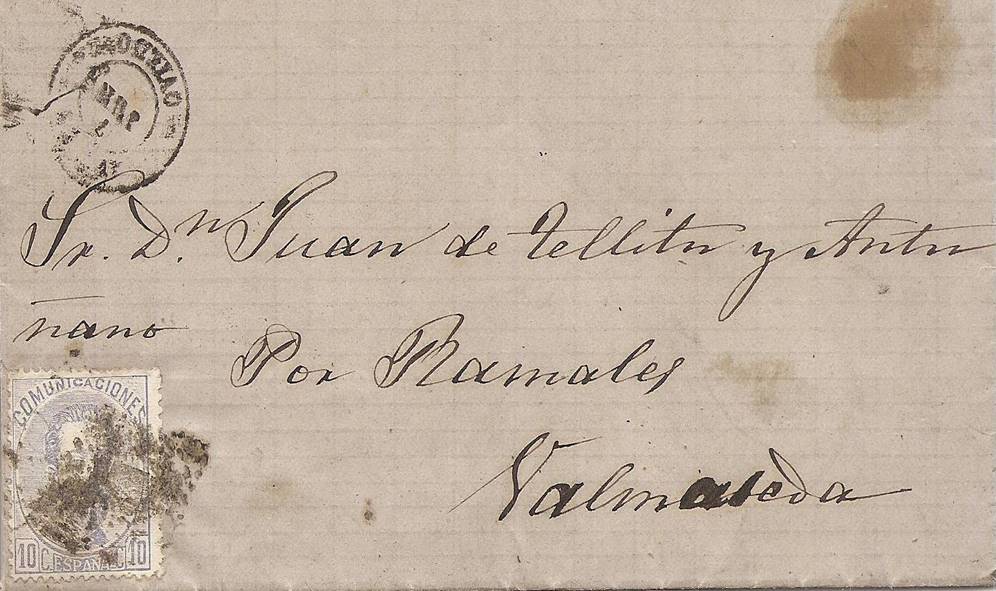 OVIEDO
Sr. Dn. Juan de Tellitu y Antu
ñano
Por Ramales
Valmaseda
COMUNICACIONES
10 C. ESPAÑA C. 10